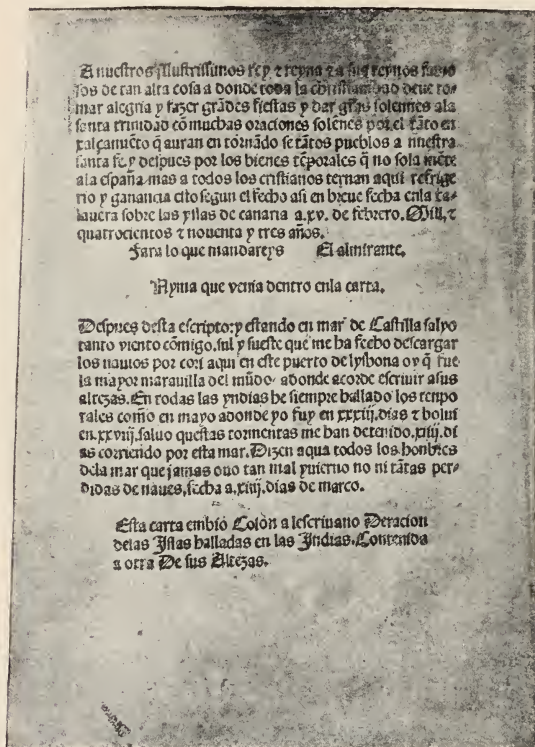 A nuestros Illustrissimos rey ⁊ reyna ⁊ a sus reynos famo
sos de tan alta cosa a donde toda la christiandad deue to-
mar alegria y fazer grãdes fiestas y dar grãs solennes ala
santa trinidad cõ muchas oraciones solẽnes por el tãto en
xalçamiẽto q̃ auran en tornãdo se tãtos pueblos a nuestra
santa fe. y despues por los bienes tẽporales q̃ no sola mẽte
ala españa mas a todos los cristianos ternan aqui refrige
rio y ganancia esto segun el fecho asi en breue fecha enla ca-
lauera sobre las yslas de canaria a.xv. de febrero. Mill. ⁊
quatrocientos ⁊ nouenta y tres años.
Fara lo que mandareys El almirante.
Nyma que venia dentro enla carta.
Despues desta escripto: y estando en mar de Castilla salyo
tanto viento cõmigo. sul y sueste que me ha fecho descargar
los nauios por cori aqui en este puerto de lysbona oy q̃ fue
la mayor marauilla del mũdo adonde acorde escriuir asus
altezas. En todas las yndias he siempre hallado los tenpo
rales como en mayo adonde yo fuy en xxxiij. dias ⁊ bolui
en.xxviij. saluo questas tormentas me han detenido.xiiij.di
as corriendo por esta mar. Dizen aqua todos los honbres
dela mar que jamas ouo tan mal yuierno no ni tãtas per-
didas de naues. fecha a.xiiij. dias de marco.
Esta carta embió Colòn a lescriuano Deracion
delas Islas halladas en las Indias. Contenida
a otra De sus Altezas.